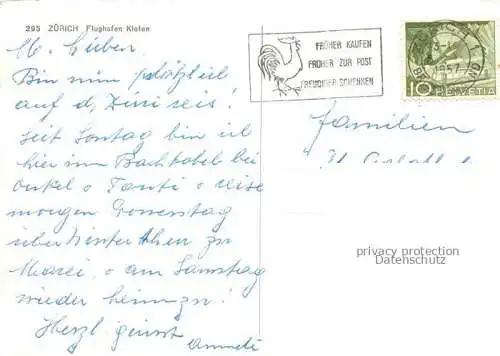 293 ZÜRICH Flughafen Kloten
M. Lieben.
Bin nun plötzlich
auf d, Züri reis!
seit Sontag bin ich
hier im Bachtobel bei
Onkel & Tanti & reise
morgen Donnerstag
über Winterthur zu
Marei & am Samstag
wieder heimzu!
Herzl. grüsst
FRÜHER KAUFEN
FRÜHER ZUR POST
FREUDIGER SCHENKEN
1957
10 HELVETIA
Familien
privacy protection
Datenschutz